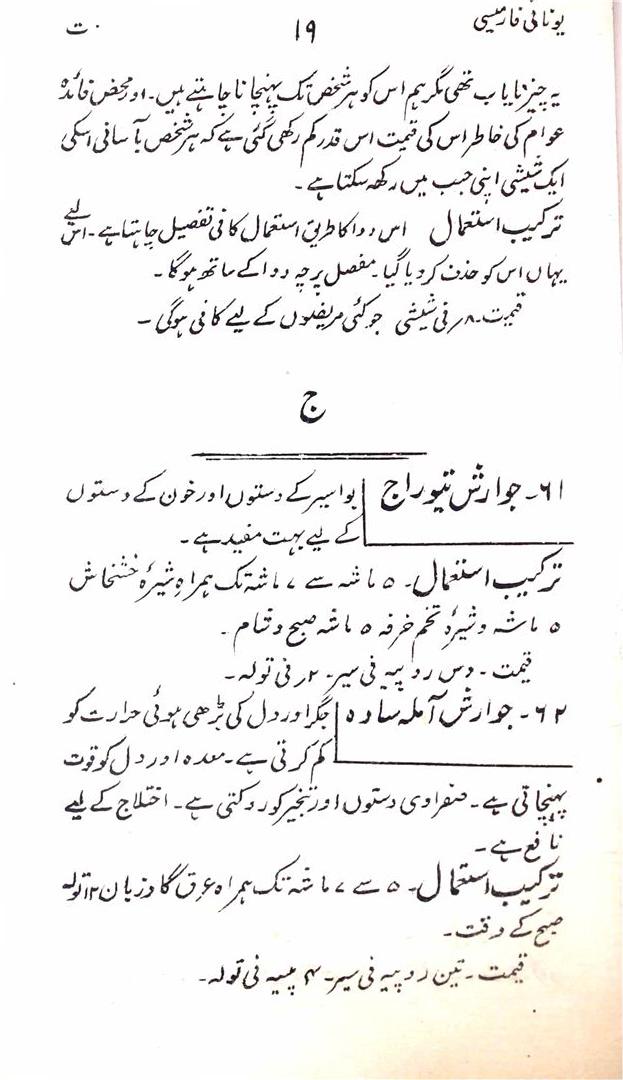 یونانی فارمیسی ۱۹ ت
یہ چیز نایاب تھی مگر ہم اس کو ہر شخص تک پہنچانا چاہتے ہیں۔ اور محض فائدہ
عوام کی خاطر اس کی قیمت اس قدر کم رکھی گئی ہے کہ ہر شخص بآسانی اسکی
ایک شیشی اپنی جیب میں رکھ سکتا ہے۔
ترکیب استعمال اس دوا کا طریق استعمال کافی تفصیل چاہتا ہے۔ اس لیے
یہاں اس کو حذف کر دیا گیا۔ مفصل پرچہ دوا کے ساتھ ہوگا۔
قیمت۔ ۸؍ فی شیشی جو کئی مریضوں کے لیے کافی ہوگی۔
ج
۶۱۔ جوارش تیوراج بواسیر کے دستوں اور خون کے دستوں
کے لیے بہت مفید ہے۔
ترکیب استعمال۔ ۵ ماشہ سے ۷ ماشہ تک ہمراہ شیرۂ خشخاش
۵ ماشہ و شیرۂ تخم خرفہ ۵ ماشہ صبح و شام۔
قیمت۔ دس روپیہ فی سیر۔ ۲؍ فی تولہ۔
۶۲۔ جوارش آملہ سادہ جگر اور دل کی بڑھی ہوئی حرارت کو
کم کرتی ہے۔ معدہ اور دل کو قوت
پہنچاتی ہے۔ صفراوی دستوں اور تبخیر کو روکتی ہے۔ اختلاج کے لیے
نافع ہے۔
ترکیب استعمال۔ ۵ سے ۷ ماشہ تک ہمراہ عرق گاوزبان ۱۲ تولہ
صبح کے وقت۔
قیمت۔ تین روپیہ فی سیر۔ ۴ پیسہ فی تولہ۔